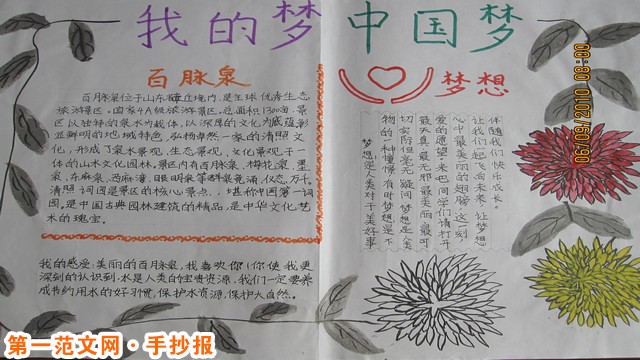 我的梦 中国梦
百脉泉
百脉泉位于山东章丘境内,是全球优秀生态
旅游景区。国家4A级旅游景区。总面积1300亩,景
区以独特的泉水为载体,以深厚的文化为底蕴,彰
显鲜明的地域特色,弘扬卓然一家的清照文
化,形成了泉水景观,生态景观,文化景观于一
体的山水文化园林。景区内有百脉泉、梅花泉、墨
泉、东麻泉、西麻湾、眼明泉等
清照词园是景区的核心景点,堪称中国第一词
园。是中国古典园林建筑的精品,是中华文化艺
术的瑰宝。
我的感受:美丽的百脉泉,我喜欢你!你使我更
深刻的认识到:水是人类的宝贵资源,我们一定要养
成节约用水的好习惯,保护水资源,保护大自然。
梦想
梦想是人类对于美好事
物的一种憧憬
切实际但毫无疑问梦想是人类
最天真最无邪最美丽最可
爱的愿望,来吧同学们请打开
心中最美丽的翅膀,这一刻,
让我们起飞向未来,让梦想
伴随我们快乐成长。
06/09/2010 08:80
第一范文网·手抄报